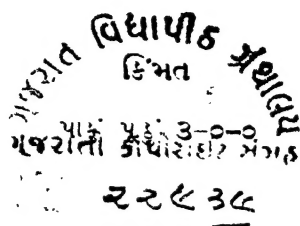 ગુજરાત વિદ્યાપીઠ ગ્રંથાલય
કિંમત
પાકું પૂઠું ૩-૦-૦
ગુજરાતી કૉપીરાઈટ સંગ્રહ
૨૨૯૩૯